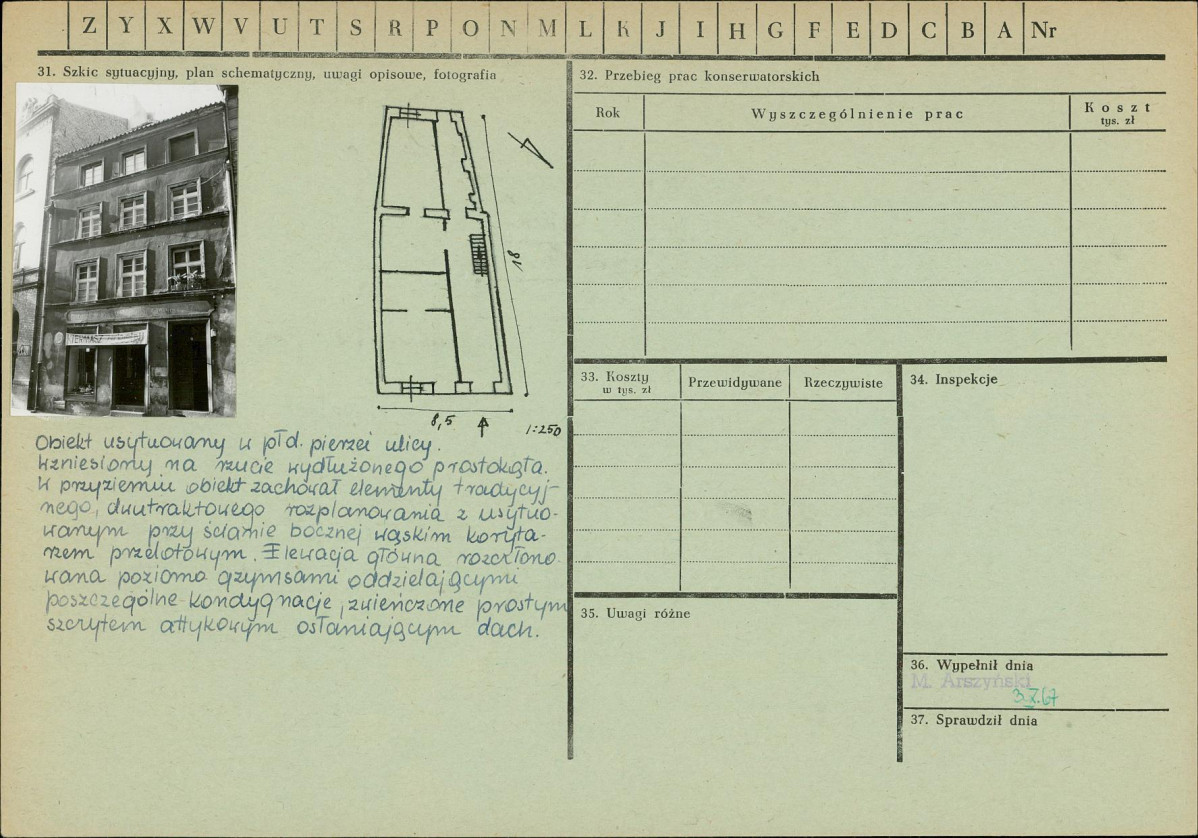 Z Y X W V U T S R P O N M L K J I H G F E D C B A Nr
31. Szkic sytuacyjny, plan schematyczny, uwagi opisowe, fotografia
18
8,5
1:250
Obiekt usytuowany w płd. pierzei ulicy.
Wzniesiony na rzucie wydłużonego prostokąta.
W przyziemiu obiekt zachował elementy tradycyj-
nego, dwutraktowego rozplanowania z usytuo-
wanym przy ścianie bocznej wąskim koryta-
rzem przelotowym. Elewacja główna rozczłono
wana poziomo gzymsami oddzielającymi
poszczególne kondygnacje, zwieńczone prostym
szczytem attykowym osłaniającym dach.
32. Przebieg prac konserwatorskich
Rok
Wyszczególnienie prac
Koszt
tys. zł
33. Koszty
w tys. zł
Przewidywane
Rzeczywiste
34. Inspekcje
35. Uwagi różne
36. Wypełnił dnia
M. Arszyński
3.X.67
37. Sprawdził dnia